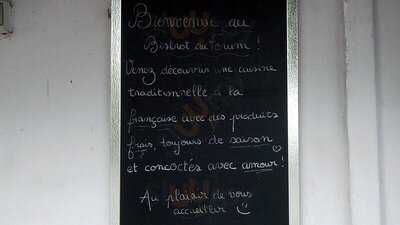 Bienvenue au
Bistrot du Forum !
Venez découvrir une cuisine
traditionnelle à la
française avec des produits
frais, toujours de saison
et concoctés avec amour !
Au plaisir de vous
accueillir